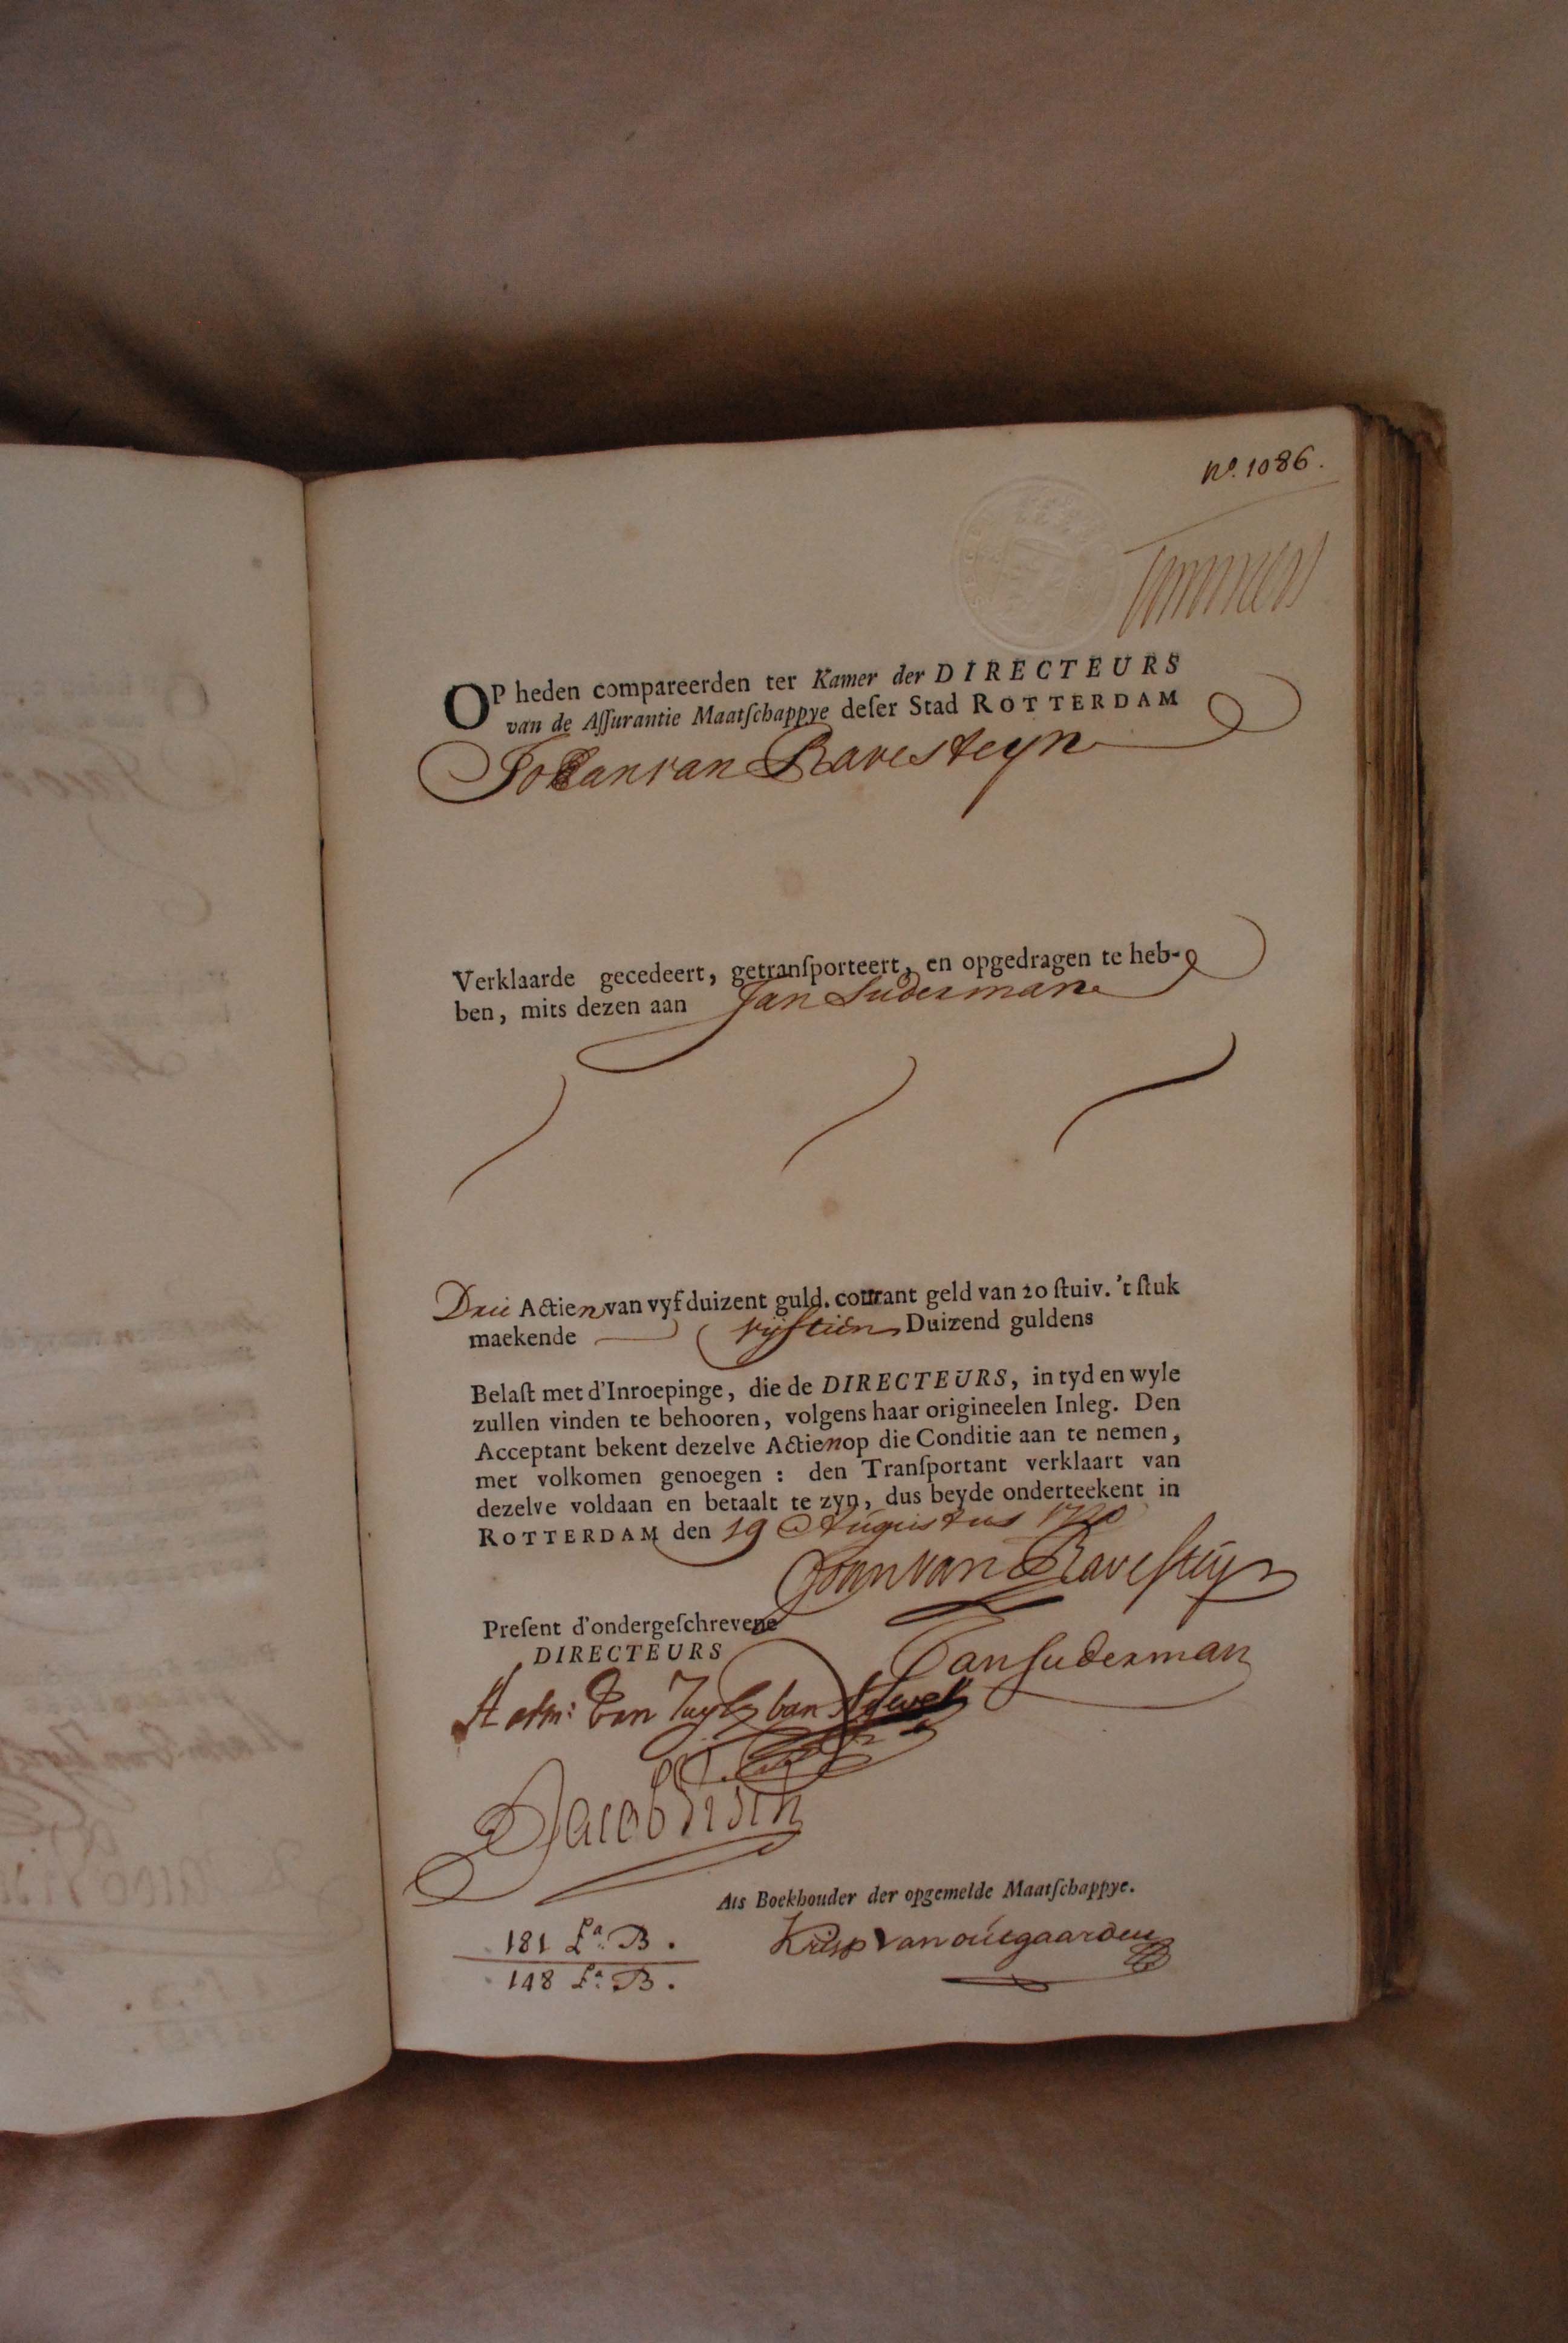 No. 1086.
OP heden compareerden ter Kamer der DIRECTEURS
van de Aſſurantie Maatſchappye deſer Stad ROTTERDAM
Johan van Ravesteyn
Verklaarde gecedeert, getranſporteert, en opgedragen te heb-
ben, mits dezen aan Jan Suderman
Drie Actien van vyf duizent guld. courant geld van 20 ſtuiv. 't ſtuk
maekende vijftien Duizend guldens
Belaſt met d'Inroepinge, die de DIRECTEURS, in tyd en wyle
zullen vinden te behooren, volgens haar origineelen Inleg. Den
Acceptant bekent dezelve Actien op die Conditie aan te nemen,
met volkomen genoegen : den Tranſportant verklaart van
dezelve voldaan en betaalt te zyn, dus beyde onderteekent in
ROTTERDAM den 19 Augustus 1720
Joan van Raveſteyn
Preſent d'ondergeſchrevene
DIRECTEURS
Jan Suderman
van Zuylen van
Jacob
Als Boekhouder der opgemelde Maatſchappye.
181 La. B.
Krisp van outgaarden
148 La. B.